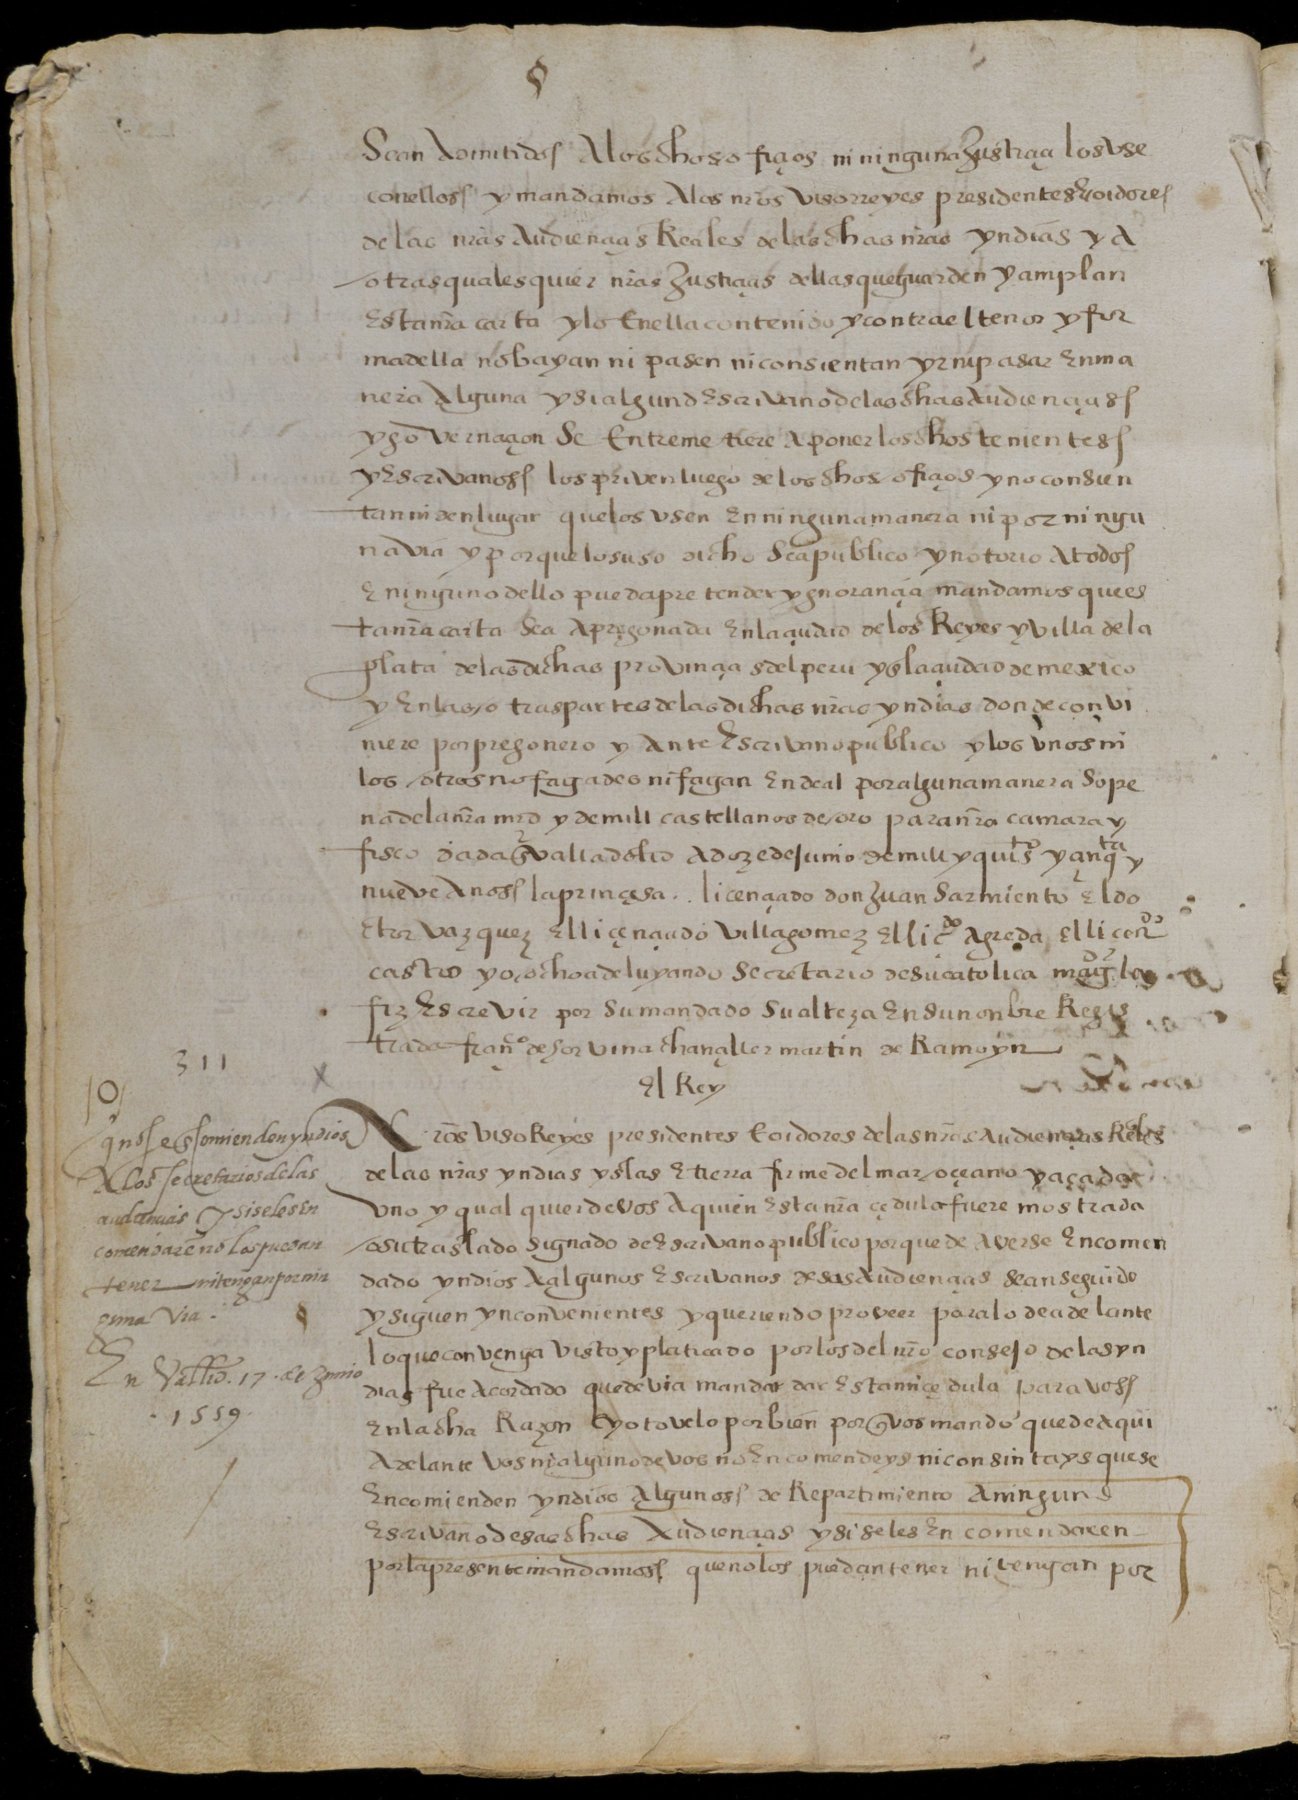 Sean Admitidos A los dhos ofiçios ni ninguna Justiçia los use
con ellos y mandamos A los nros Visorreyes presidentes E oidores
de las nras Audiençias Reales de las dhas nras yndias y A
otras qualesquier nras Justiçias dellas que guarden y cumplan
Esta nra carta y lo En ella contenido y contra el tenor y for
ma della no bayan ni pasen ni consientan yr ni pasar En ma
nera Alguna y si algund Escrivano de las dhas Audiençias
y governaçion Se Entremetiere A poner los dhos tenientes
y Escrivanos los priven luego de los dhos ofiçios y no consien
tan ni den lugar que los usen En ninguna manera ni por ningu
na via y porque lo suso dicho Sea publico y notorio A todos
E ninguno dello pueda pretender ygnorançia mandamos que es
ta nra carta Sea Apregonada En la çiudad de los Reyes y Villa de la
plata de las dichas provinçias del peru y En la çiudad de mexico
y En las otras partes de las dichas nras yndias donde convi
niere por pregonero y Ante Escrivano publico y los unos ni
los otros no fagades ni fagan En deal por alguna manera So pe
na de la nra mrd y de mill castellanos de oro para nra camara y
fisco dada En Valladolid A doze de junio de mill y quis y çinqta y
nueve Anos la prinçesa . . liçençiado don Juan Sarmiento El do
ctor Vazquez El liçençiado Villagomez El licdo Agreda El licendo
castro yo ochoa de luyando Secretario de su catolica magd la
fiz Escrevir por su mandado Su alteza En su nonbre Regis
trada franco de hor vina chançiller martin de Ramoyn
El Rey
311
qe no se Encomienden yndios
A los secretarios de las
audiencias y si se les En
comendaren no los puedan
tener ni tengan por nin
guna Via.
En Vallid. 17. de Junio
. 1559.
Nros Viso Reyes presidentes E oidores de las nras Audiençias Reales
de las nras yndias yslas E tierra firme del mar oçeano y a cada
Uno y qualquier de Vos A quien Esta nra çedula fuere mostrada
o su traslado Signado de Escrivano publico porque de Averse Encomen
dado yndios A algunos Escrivanos de sas Audiençias Sean seguido
y siguen ynconvenientes y queriendo proveer para lo de adelante
lo que convenga Visto y platicado por los del nro consejo de las yn
dias fue Acordado que devia mandar dar Esta mi çedula para Vos
En la dha Razon E yo tovelo por bien por qe Vos mando que de Aqui
Adelante Vos ni alguno de Vos no Encomendeys ni consintays que se
Encomienden yndios Algunos de Repartimiento A ningund
Escrivano de sas dhas Audiençias y si se les Encomendaren
por la presente mandamos que no los puedan tener ni tengan por